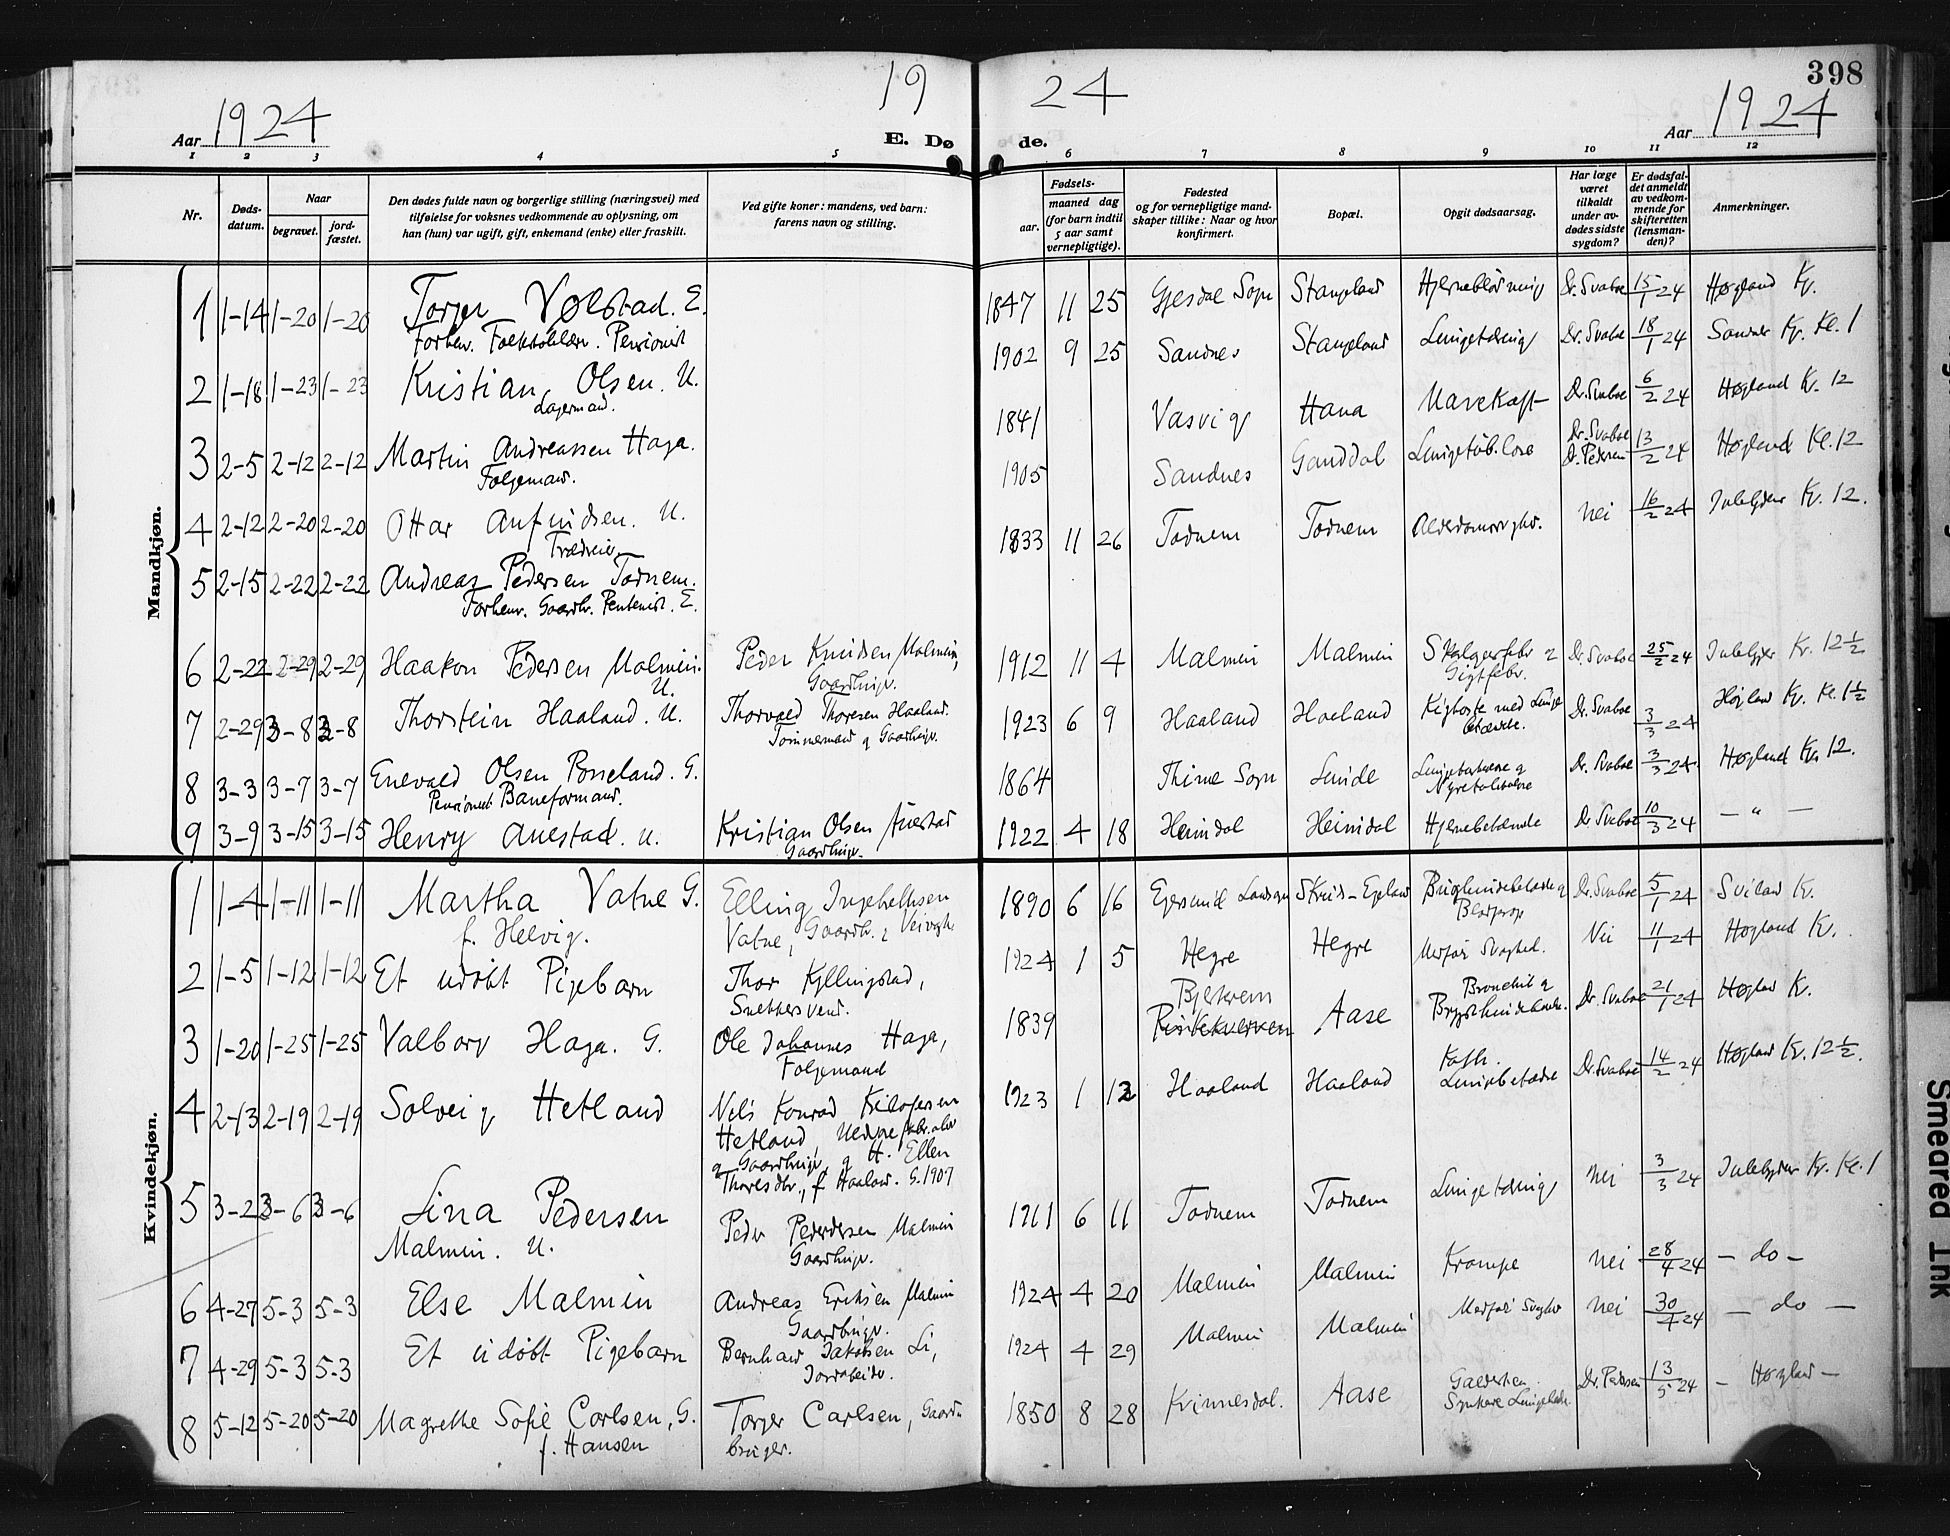 19 24
398
Aar 1924
E. Døde.
Aar 1924
1 2 3 4 5 6 7 8 9 10 11 12
Nr.
Døds-datum.
Naar
begravet.
jord-fæstet.
Den dødes fulde navn og borgerlige stilling (næringsvei) med
tilføielse for voksnes vedkommende av oplysning, om
han (hun) var ugift, gift, enkemand (enke) eller fraskilt.
Ved gifte koner: mandens, ved barn:
farens navn og stilling.
Fødsels-
aar.
maaned dag
(for barn indtil
5 aar samt
vernepligtige).
Fødested
og for vernepligtige mand-
skaper tillike: Naar og hvor
konfirmert.
Bopæl.
Opgit dødsaarsag.
Har læge
været
tilkaldt
under av-
dødes sidste
sygdom?
Er dødsfal-
det anmeldt
av vedkom-
mende for
skifteretten
(lensman-
den)?
Anmerkninger.
Mandkjøn.
1 1-14 1-20 1-20 Torger Vølstad. E. 1847 11 25 Gjesdal Sogn Stangeland Hjerneblødning Dr. Svaboe 15/1 24 Høgland Kr.
Forhenv. Pensionist
2 1-18 1-23 1-23 Kristian Olsen. U. 1902 9 25 Sandnes Stangeland Lungetæring Dr. Svaboe 18/1 24 Sandnes Kr. Kl. 1
Lagermand.
3 2-5 2-12 2-12 Martin Andreassen Haga. 1841 Vasvig Hana Mavekræft Dr. Svaboe 6/2 24 Høgland Kr. 12
Følgemand.
4 2-12 2-20 2-20 Ottar Anfindsen. U. 1905 Sandnes Ganddal Dr. Svaboe Dr. Pedersen 13/2 24 Høgland Kl. 12
5 2-15 2-22 2-22 Andreas Pedersen Todnem. 1833 11 26 Todnem Todnem Nei 16/2 24 Julebygden Kr. 12.
Forhenv. Gaardbr. E.
6 2-22 2-29 2-29 Haakon Pedersen Malmin. U. Peder Knudsen Malmin, Gaardbruger. 1912 11 4 Malmin Malmin Gigtfebr. Dr. Svaboe 25/2 24 Julebygden Kr. 12 1/2
7 2-29 3-8 3-8 Thorstein Haaland. U. Thorvald Thoresen Haaland. Tømmermand og Gaardbrugr. 1923 6 9 Haaland Haaland Kighoste med Lungebetændelse. Dr. Svaboe 3/3 24 Høgland Kr. Kl. 1 1/2
8 3-3 3-7 3-7 Enevald Olsen G. 1864 Thime Sogn Lunde Dr. Svaboe 3/3 24 Høgland Kr. 12.
Pensioneret Baneformand.
9 3-9 3-15 3-15 Henry Auestad. U. Kristian Olsen Auestad Gaardbrugr. 1922 4 18 Heimdal Heimdal Hjernebetændelse Dr. Svaboe 10/3 24 — " —
Kvindekjøn.
1 1-4 1-11 1-11 Martha Vatne G. Elling Ingebretsen 1890 6 16 Egersund Landsogn Dr. Svaboe 5/1 24 Sviland Kr.
f. Helvig. Vatne, Gaardbr.
2 1-5 1-12 1-12 Et udøbt Pigebarn Thor Kyllingstad, Snekkersvend. 1924 1 5 Hegre Hegre Medfød Svaghed. Nei 11/1 24 Høgland Kr.
3 1-20 1-25 1-25 Valborg Haga. G. Ole Johannes Haga, Følgemand 1839 Bjerkrem Aase Bronchit og Dr. Svaboe 21/1 24 Høgland Kr.
4 2-13 2-19 2-19 Solveig Hetland Nils Konrad 1923 1 12 Haaland Haaland Lungebetændelse Dr. Svaboe 14/2 24 Høgland Kr. 12 1/2.
Hetland,
og Gaardbruger, og H. Ellen
Thoresdtr., f. Haaland. G. 1907
5 3-2 3-6 3-6 Lina Pedersen Peder Pedersen Malmin 1911 6 11 Todnem Todnem Lungetæring Nei 3/3 24 Julebygden Kr. Kl. 1
Malmin. U. Gaardbrugr.
6 4-27 5-3 5-3 Else Malmin Andreas Eriksen Malmin Gaardbrugr. 1924 4 20 Malmin Malmin Krampe Nei 28/4 24 — do —
7 4-29 5-3 5-3 Et udøbt Pigebarn Bernhard Jakobsen Li, Jordarbeider. 1924 4 29 Malmin Malmin Medfød Svaghed Nei 30/4 24 — do —
8 5-12 5-20 5-20 Magrethe Sofie Carlsen, G. Torger Carlsen, Gaardbruger. 1850 8 28 Kvinnesdal. Aase Dr. Pedersen 13/5 24 — Høgland —
f. Hansen
Smeared Ink